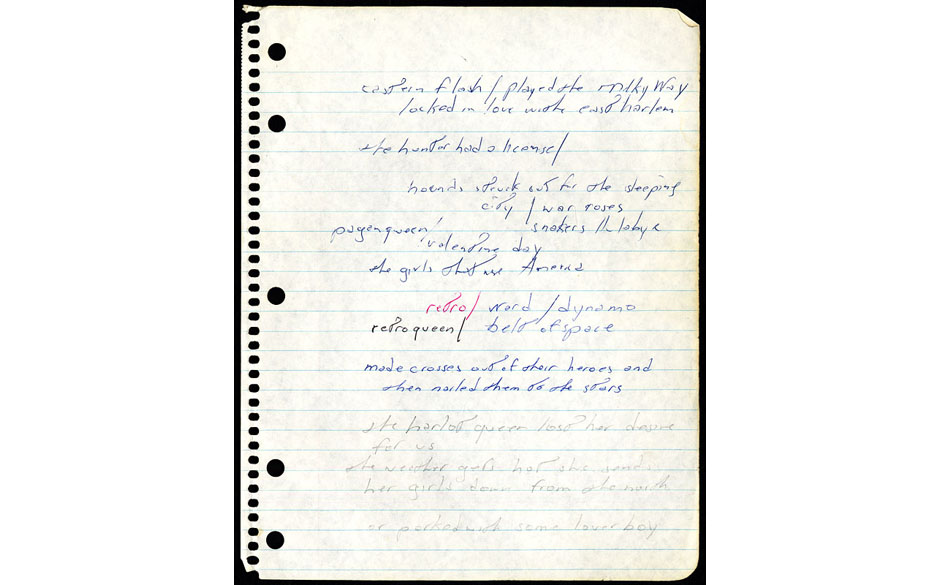 eastern flash / played the milky Way
locked in love with east harlem
the hunter had a license /
hounds struck out for the sleeping
city / war roses
pagen queen / snakers
valentine day
the girls that use America
retro / word / dynamo
retro queen / belt of space
made crosses out of their heroes and
then nailed them to the stars
the harlot queen lost her desire
for us
the weather gets hot she sends
her girls down from the north
or parked with some lover boy